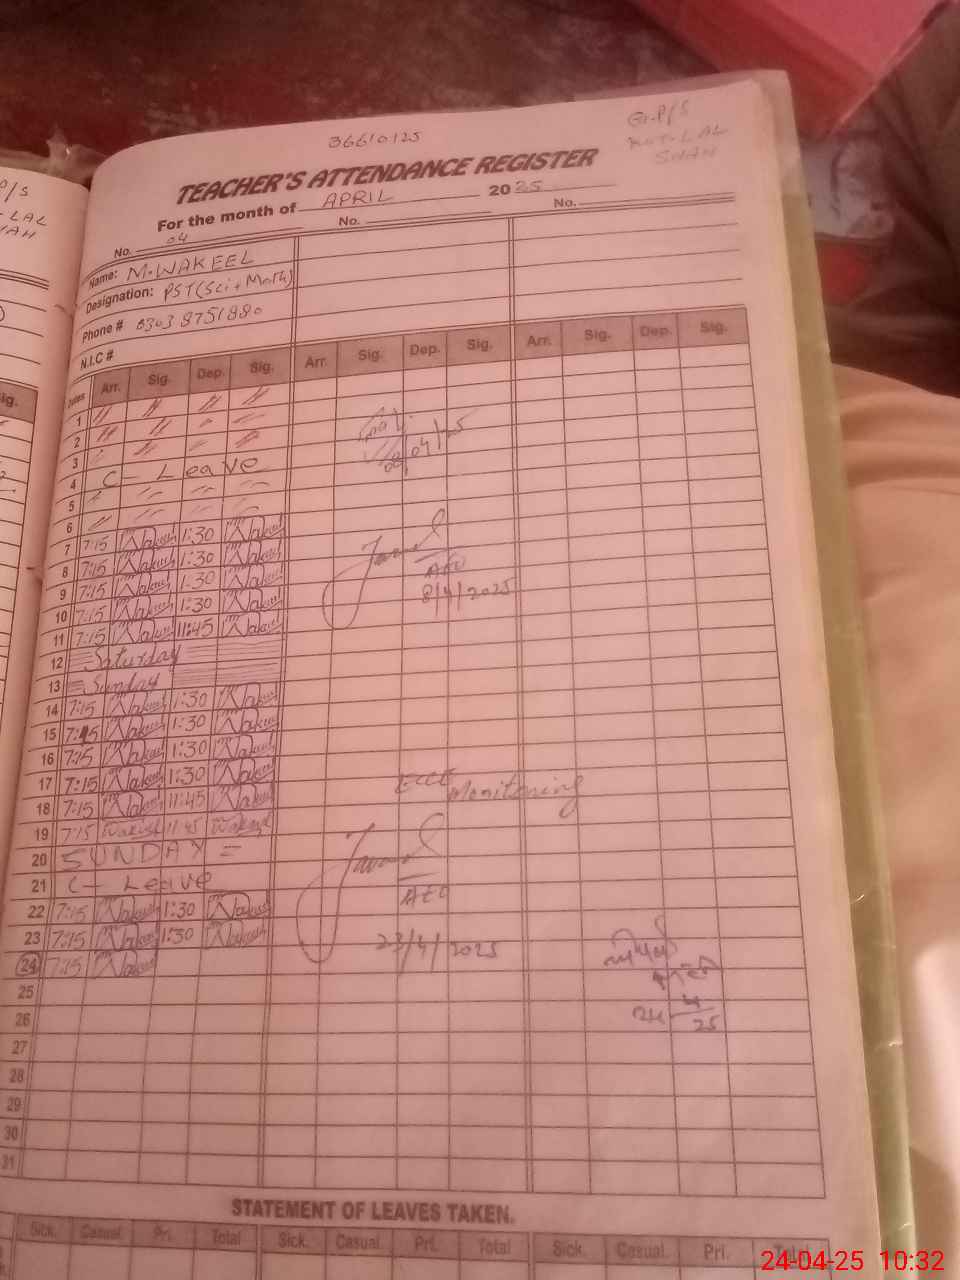 36610125
G.P/S
KOT-LAL
SHAH
TEACHER'S ATTENDANCE REGISTER
For the month of APRIL 2025
No. 04 No. No.
Name: M.WAKEEL
Designation: PST(Sci+Math)
Phone # 0303 8751880
N.I.C #
Dates Arr. Sig. Dep. Sig. Arr. Sig. Dep. Sig. Arr. Sig. Dep. Sig.
1
2
3
4 C- Leave
5
6
7 7:15 Wakeel 1:30 Wakeel
8 7:15 Wakeel 1:30 Wakeel
9 7:15 Wakeel 1:30 Wakeel
10 7:15 Wakeel 1:30 Wakeel
11 7:15 Wakeel 11:45 Wakeel
12 Saturday
13 Sunday
14 7:15 Wakeel 1:30 Wakeel
15 7:15 Wakeel 1:30 Wakeel
16 7:15 Wakeel 1:30 Wakeel
17 7:15 Wakeel 1:30 Wakeel
18 7:15 Wakeel 11:45 Wakeel
19 7:15 Wakeel 11:45 Wakeel
20 SUNDAY =
21 C- Leave
22 7:15 Wakeel 1:30 Wakeel
23 7:15 Wakeel 1:30 Wakeel
24 7:15 Wakeel
25
26
27
28
29
30
31
04/25
AEO
8/4/2025
ECCE Monitoring
AEO
23/4/2025
24 4
25
STATEMENT OF LEAVES TAKEN.
Sick. Casual. Pri. Total Sick. Casual. Pri. Total Sick. Casual. Pri. Total
P/S
LAL
AH
Sig.
24-04-25 10:32